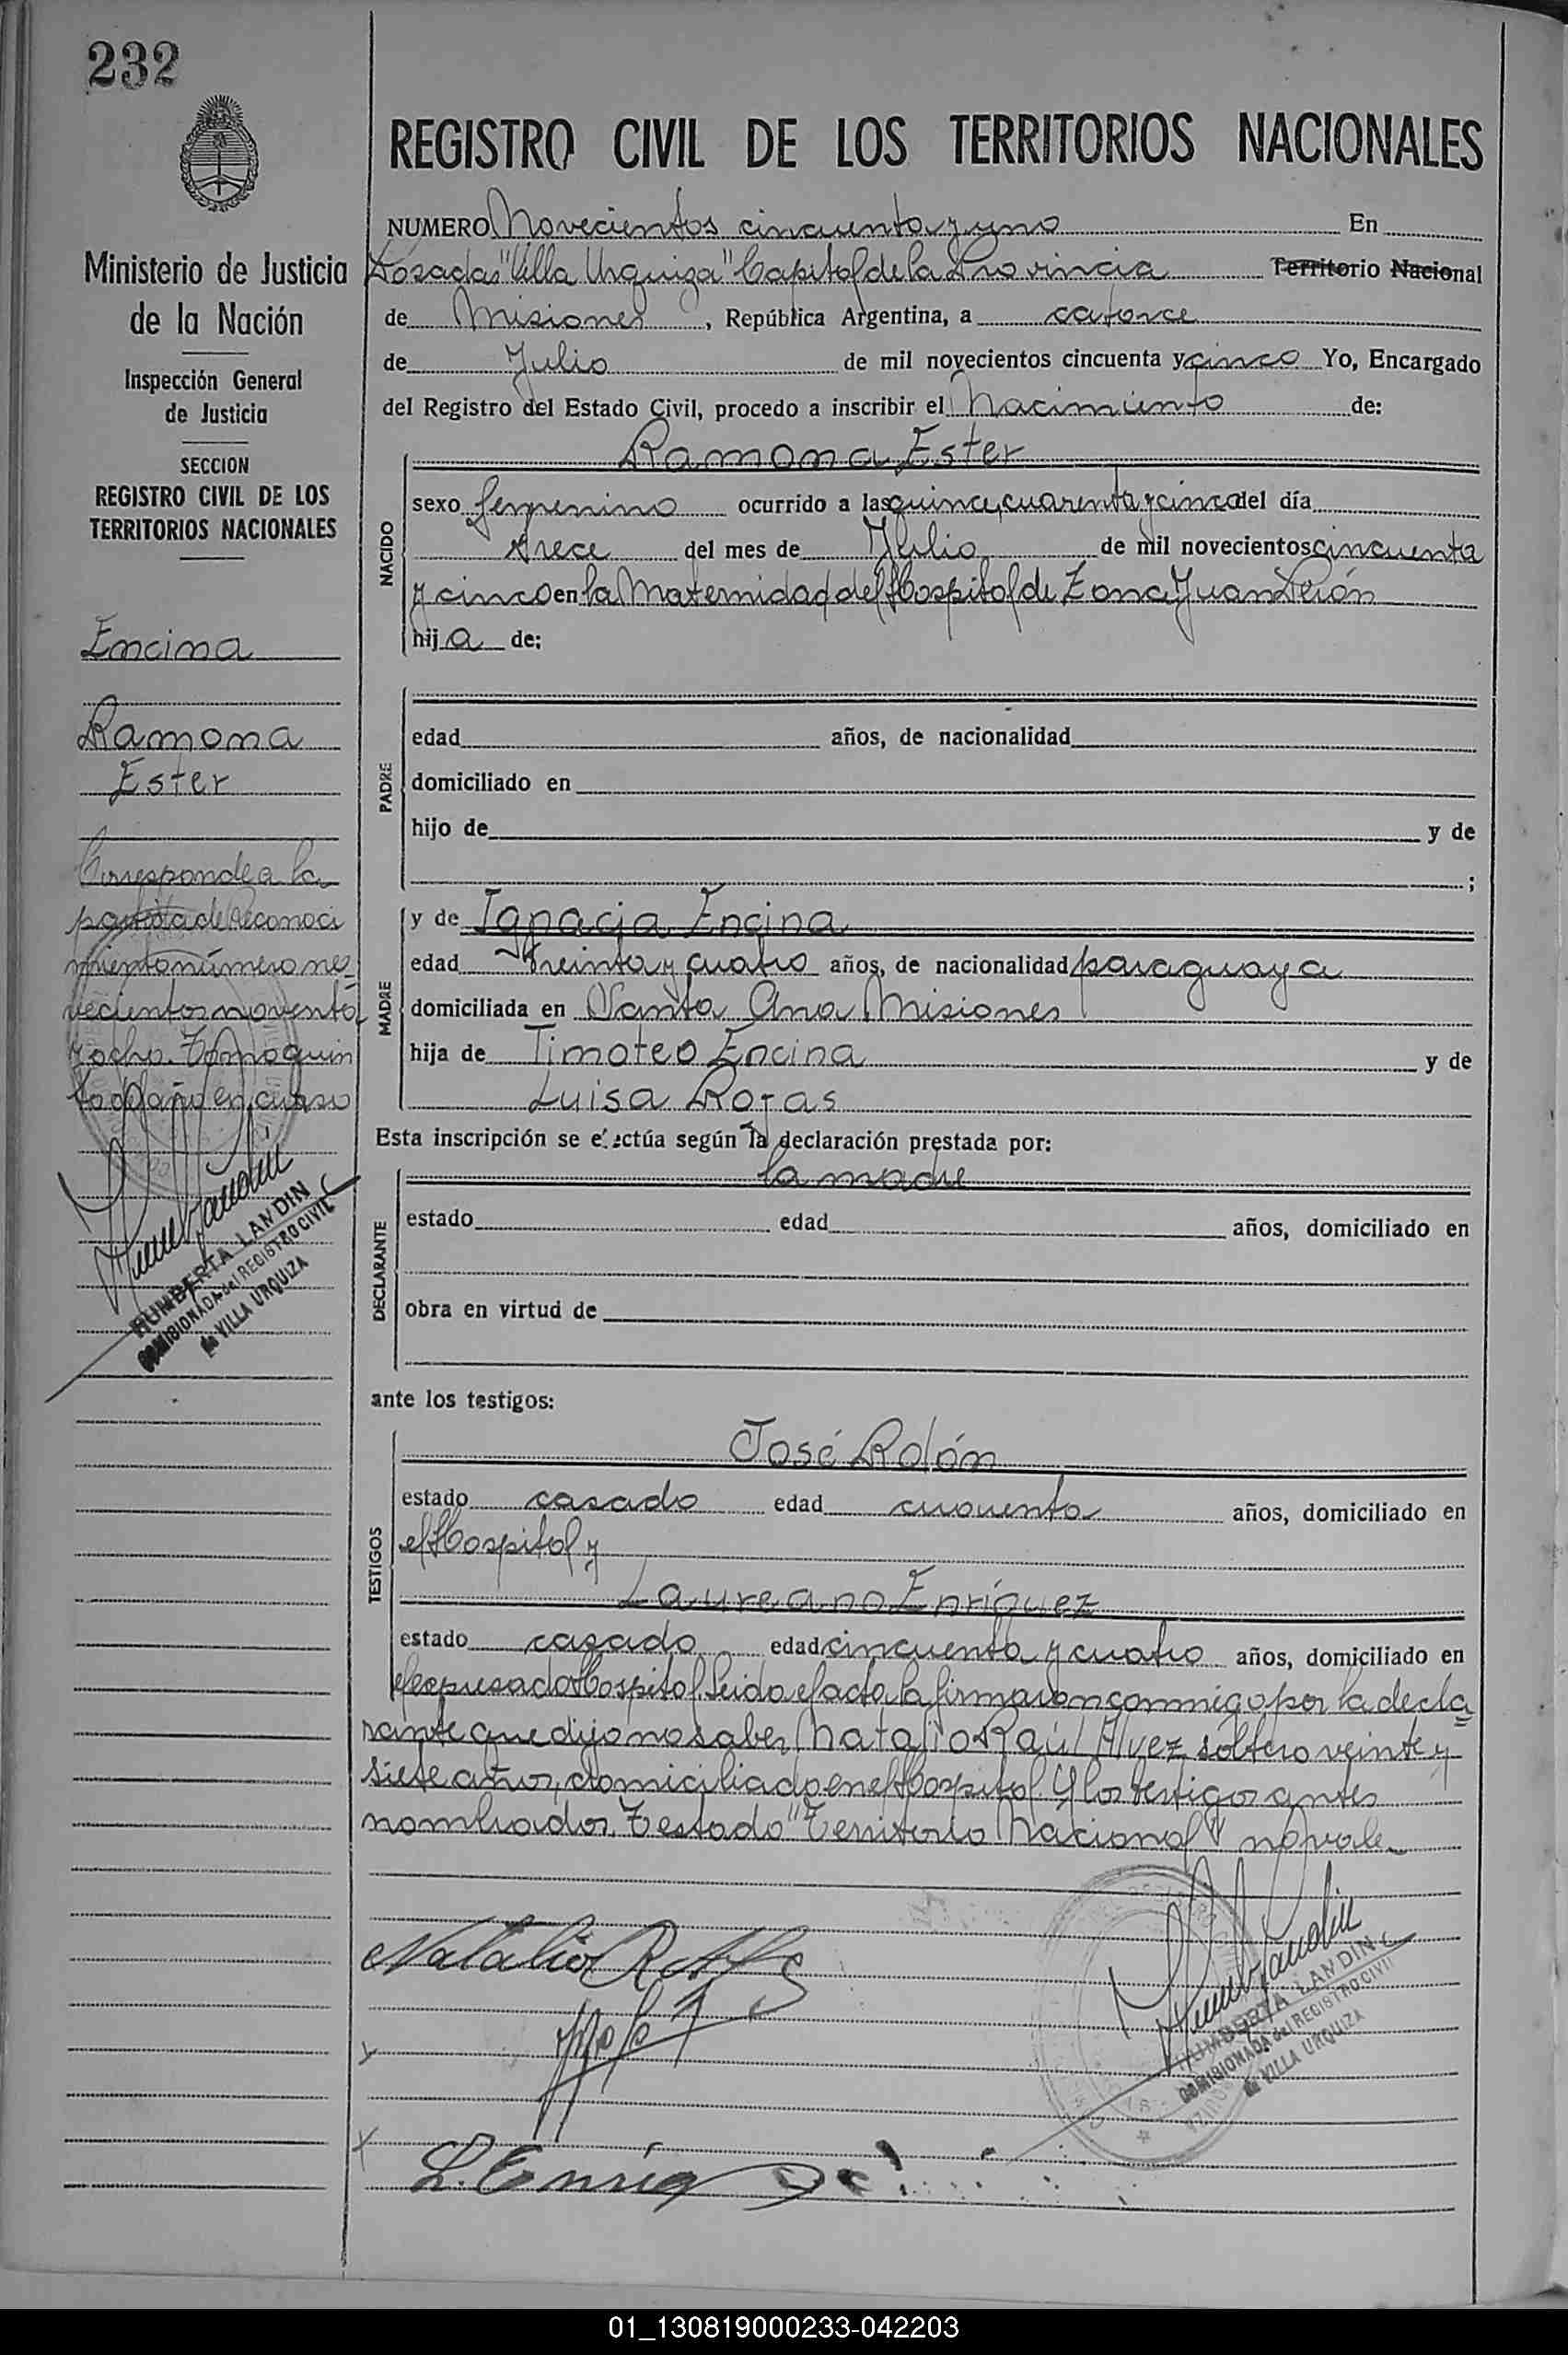 232
Ministerio de Justicia
de la Nación
Inspección General
de Justicia
SECCION
REGISTRO CIVIL DE LOS
TERRITORIOS NACIONALES
Encina
Ramona
Ester
Corresponde a la
partida de Reconoci
miento número no=
vecientos noventa
y ocho. Tomo quin
to del año en curso
HUMBERTA LANDIN
COMISIONADA del REGISTRO CIVIL
de VILLA URQUIZA
REGISTRO CIVIL DE LOS TERRITORIOS NACIONALES
NUMERO Novecientos cincuenta y uno En
Posadas "Villa Urquiza" Capital de la Provincia Territorio Nacional
de Misiones, República Argentina, a catorce
de Julio de mil novecientos cincuenta y cinco Yo, Encargado
del Registro del Estado Civil, procedo a inscribir el Nacimiento de:
Ramona Ester
NACIDO
sexo femenino ocurrido a las quince, cuarenta y cinco del día
trece del mes de Julio de mil novecientos cincuenta
y cinco en la Maternidad del Hospital de Zona Juan Perón
hija de:
PADRE
edad años, de nacionalidad
domiciliado en
hijo de y de
;
MADRE
y de Ignacia Encina
edad treinta y cuatro años, de nacionalidad paraguaya
domiciliada en Santa Ana Misiones
hija de Timoteo Encina y de
Luisa Rojas
Esta inscripción se efectúa según la declaración prestada por:
la madre
DECLARANTE
estado edad años, domiciliado en
obra en virtud de
ante los testigos:
José Rolón
TESTIGOS
estado casado edad cuarenta años, domiciliado en
el Hospital y
Laureano Enríquez
estado casado edad cincuenta y cuatro años, domiciliado en
el expresado Hospital. Leida el acta la firmaron conmigo por la decla=
rante que dijo no saber, Natalio Raúl Alvez soltero veinte y
siete años, domiciliado en el Hospital. Y los testigos antes
nombrados. Testado "Territorio Nacional" no vale.
Natalio R.
L. Enriq
HUMBERTA LANDIN
COMISIONADA del REGISTRO CIVIL
de VILLA URQUIZA
01_130819000233-042203